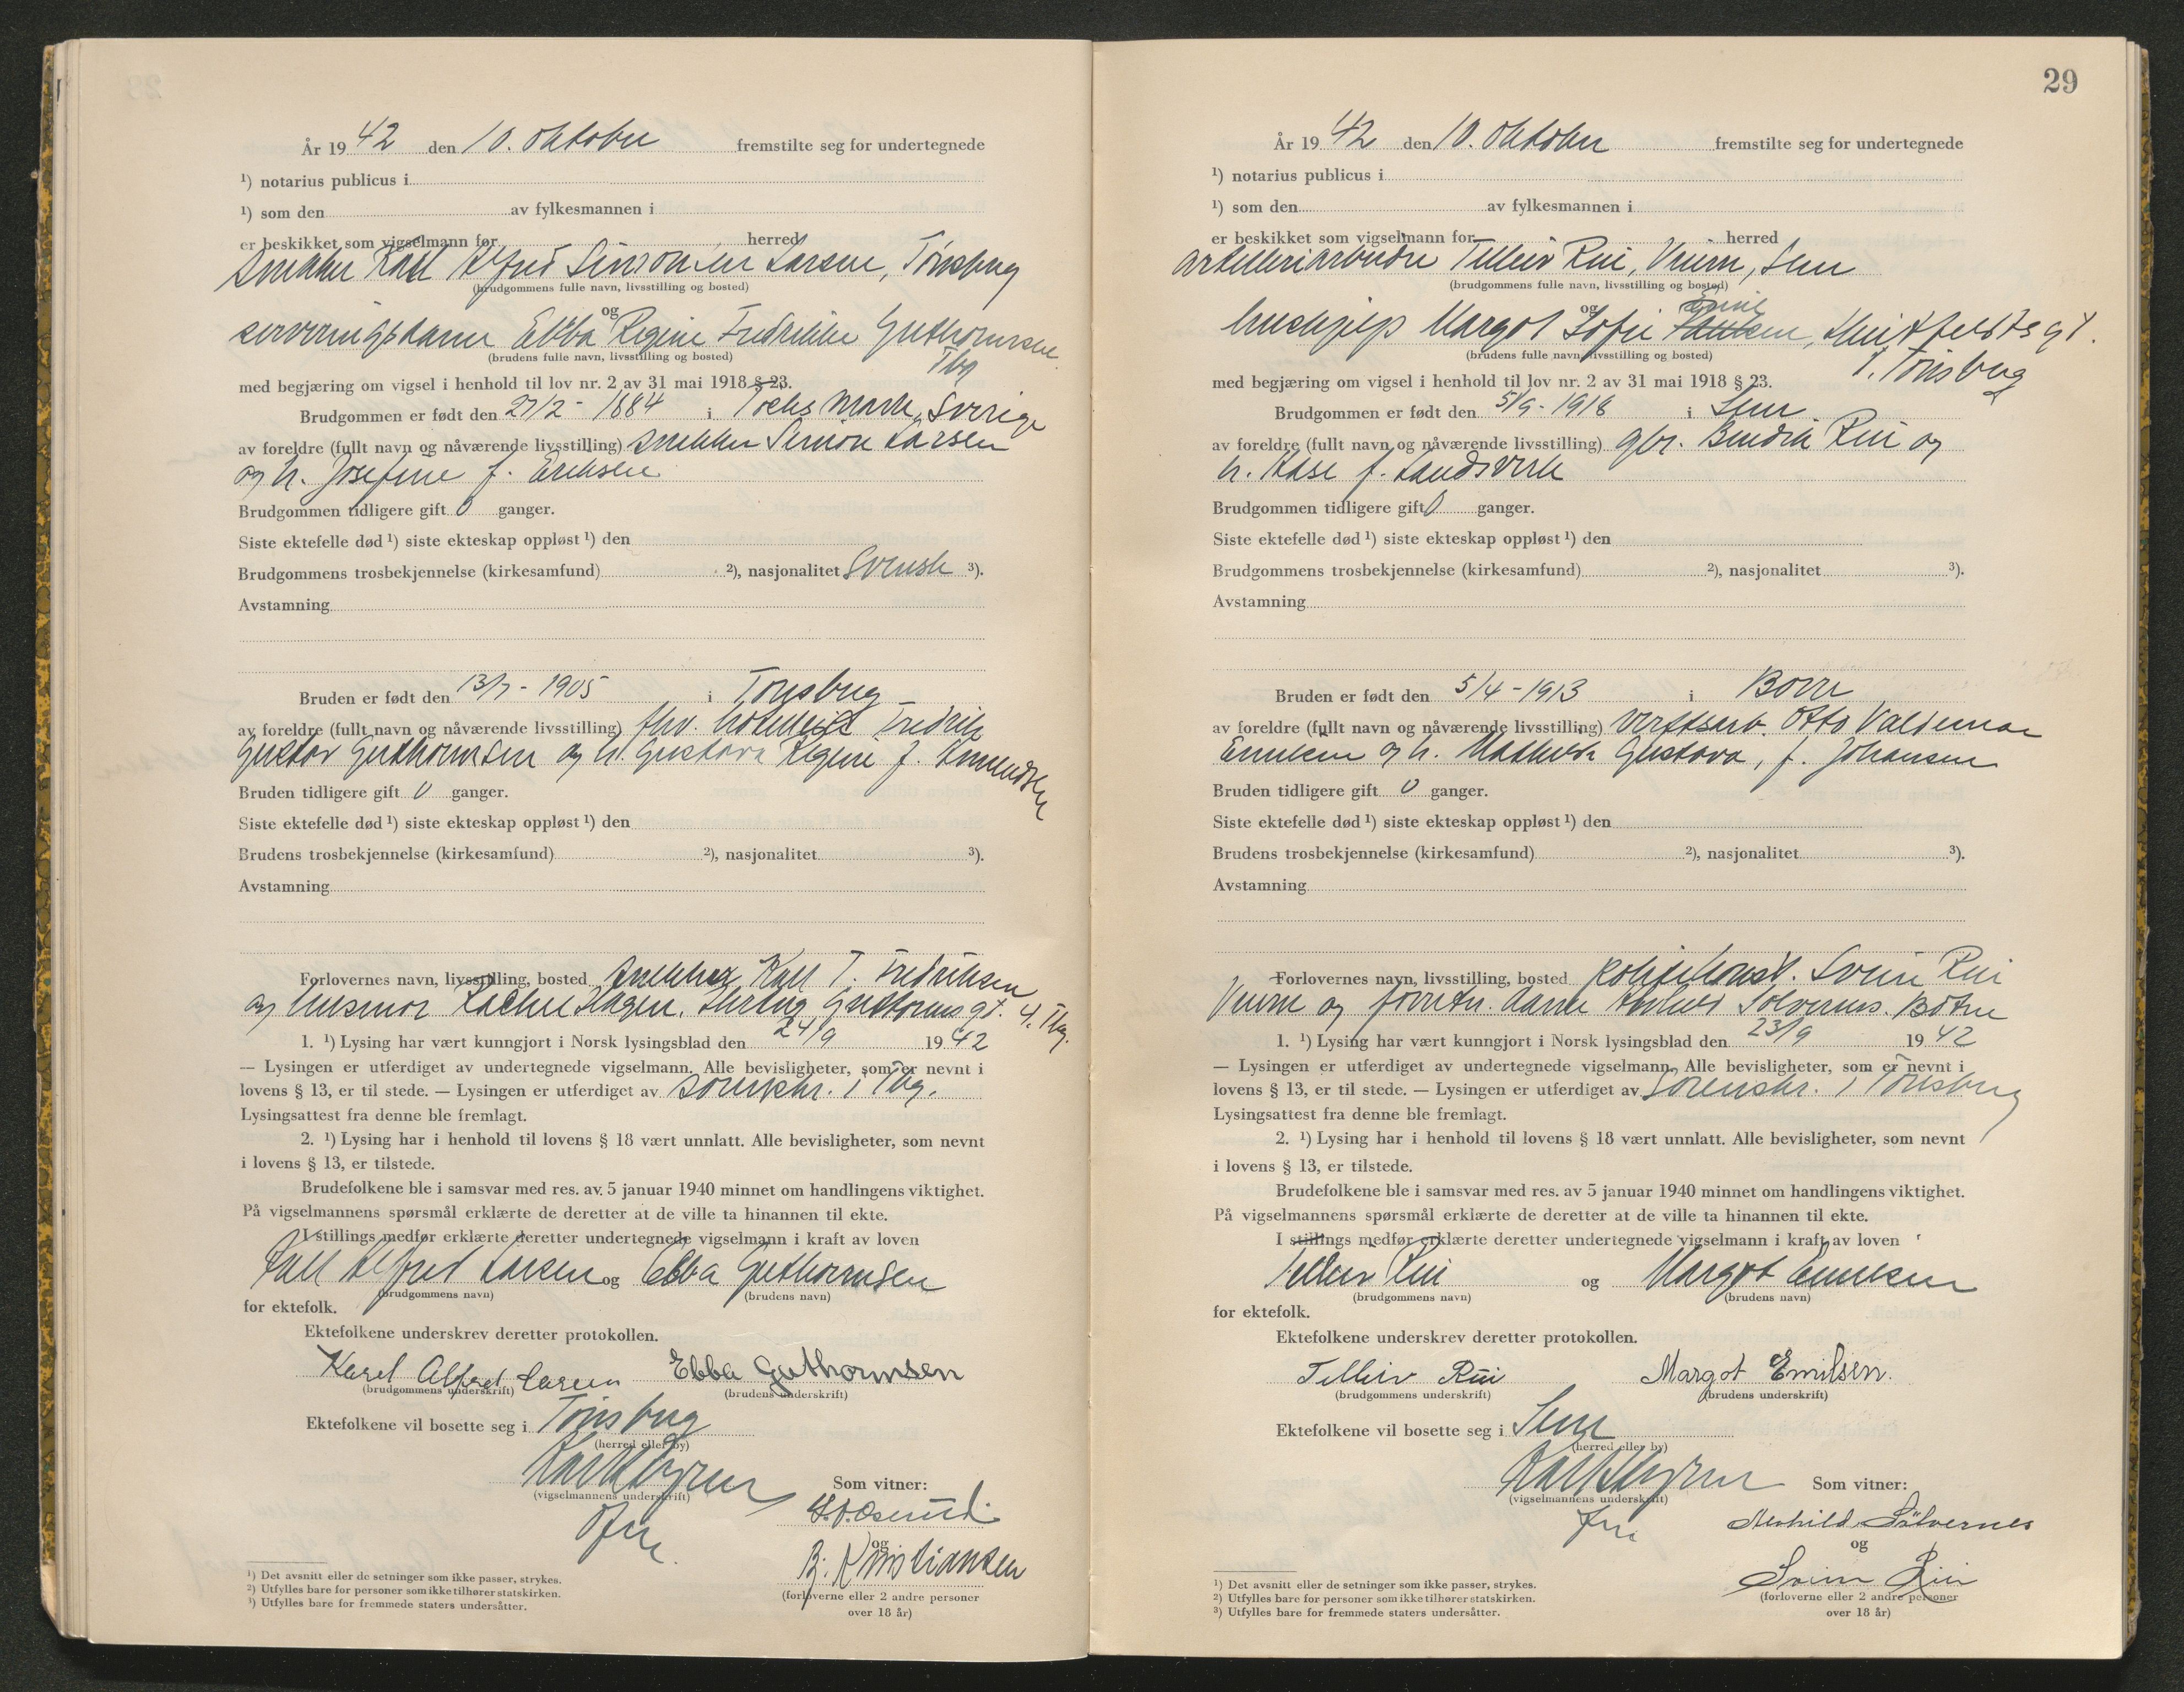 År 19 42 den 10. oktober fremstilte seg for undertegnede
¹) notarius publicus i
¹) som den av fylkesmannen i
er beskikket som vigselmann for herred
Snekker Karl Alfred Simonsen Larsen, Tønsberg
(brudgommens fulle navn, livsstilling og bosted)
og
serveringsdame Ebba Regine Fredrikke Guthormsen
(brudens fulle navn, livsstilling og bosted)
Tbg
med begjæring om vigsel i henhold til lov nr. 2 av 31 mai 1918 § 23.
Brudgommen er født den 27/2 - 1884 i Mark, Sverige
av foreldre (fullt navn og nåværende livsstilling) snekker Simon Larsen
og h. Josefine f. Eriksen
Brudgommen tidligere gift 0 ganger.
Siste ektefelle død ¹) siste ekteskap oppløst ¹) den
Brudgommens trosbekjennelse (kirkesamfund) ²), nasjonalitet Svensk ³).
Avstamning
Bruden er født den 13/7 - 1905 i Tønsberg
av foreldre (fullt navn og nåværende livsstilling) fhv. Fredrik
Gustav Guthormsen og h. Gustava Regine f.
Bruden tidligere gift 0 ganger.
Siste ektefelle død ¹) siste ekteskap oppløst ¹) den
Brudens trosbekjennelse (kirkesamfund) ²), nasjonalitet ³).
Avstamning
Forlovernes navn, livsstilling, bosted snekker Karl T. Fredriksen
og husmor Hagen, Guthormsgt. 4. Tbg.
1. ¹) Lysing har vært kunngjort i Norsk lysingsblad den 24/9 19 42
— Lysingen er utferdiget av undertegnede vigselmann. Alle bevisligheter, som er nevnt i
lovens § 13, er til stede. — Lysingen er utferdiget av sorenskr. i Tbg.
Lysingsattest fra denne ble fremlagt.
2. ¹) Lysing har i henhold til lovens § 18 vært unnlatt. Alle bevisligheter, som nevnt
i lovens § 13, er tilstede.
Brudefolkene ble i samsvar med res. av. 5 januar 1940 minnet om handlingens viktighet.
På vigselmannens spørsmål erklærte de deretter at de ville ta hinannen til ekte.
I stillings medfør erklærte deretter undertegnede vigselmann i kraft av loven
Karl Alfred Larsen og Ebba Guthormsen
(brudgommens navn) (brudens navn)
for ektefolk.
Ektefolkene underskrev deretter protokollen.
Karl Alfred Larsen Ebba Guthormsen
(brudgommens underskrift) (brudens underskrift)
Ektefolkene vil bosette seg i Tønsberg
(herred eller by)
(vigselmannens underskrift)
Som vitner:
og
B. Kristiansen
(forloverne eller 2 andre personer
over 18 år)
¹) Det avsnitt eller de setninger som ikke passer, strykes.
²) Utfylles bare for personer som ikke tilhører statskirken.
³) Utfylles bare for fremmede staters undersåtter.
29
År 19 42 den 10. oktober fremstilte seg for undertegnede
¹) notarius publicus i
¹) som den av fylkesmannen i
er beskikket som vigselmann for herred
artilleriarbeider Telleiv Rui, Sem
(brudgommens fulle navn, livsstilling og bosted)
og
hushjelp Margot Sofie
(brudens fulle navn, livsstilling og bosted)
Tønsberg
med begjæring om vigsel i henhold til lov nr. 2 av 31 mai 1918 § 23.
Brudgommen er født den 5/9 - 1918 i Sem
av foreldre (fullt navn og nåværende livsstilling) gbr. Bendik Rui og
h. Aase f. Landsverk
Brudgommen tidligere gift 0 ganger.
Siste ektefelle død ¹) siste ekteskap oppløst ¹) den
Brudgommens trosbekjennelse (kirkesamfund) ²), nasjonalitet ³).
Avstamning
Bruden er født den 5/4 - 1913 i Borre
av foreldre (fullt navn og nåværende livsstilling) verftsarb. Otto Valdemar
Emilsen og h. Mathilda Gustava, f. Johansen
Bruden tidligere gift 0 ganger.
Siste ektefelle død ¹) siste ekteskap oppløst ¹) den
Brudens trosbekjennelse (kirkesamfund) ²), nasjonalitet ³).
Avstamning
Forlovernes navn, livsstilling, bosted politikonst. Svein Rui
og Solvernes. Botne
1. ¹) Lysing har vært kunngjort i Norsk lysingsblad den 23/9 19 42
— Lysingen er utferdiget av undertegnede vigselmann. Alle bevisligheter, som er nevnt i
lovens § 13, er til stede. — Lysingen er utferdiget av Sorenskr. i Tønsberg
Lysingsattest fra denne ble fremlagt.
2. ¹) Lysing har i henhold til lovens § 18 vært unnlatt. Alle bevisligheter, som nevnt
i lovens § 13, er tilstede.
Brudefolkene ble i samsvar med res. av 5 januar 1940 minnet om handlingens viktighet.
På vigselmannens spørsmål erklærte de deretter at de ville ta hinannen til ekte.
I stillings medfør erklærte deretter undertegnede vigselmann i kraft av loven
Telleiv Rui og Margot Emilsen
(brudgommens navn) (brudens navn)
for ektefolk.
Ektefolkene underskrev deretter protokollen.
Telleiv Rui Margot Emilsen.
(brudgommens underskrift) (brudens underskrift)
Ektefolkene vil bosette seg i Sem
(herred eller by)
(vigselmannens underskrift)
Som vitner:
Solvernes
og
Svein Rui
(forloverne eller 2 andre personer
over 18 år)
¹) Det avsnitt eller de setninger som ikke passer, strykes.
²) Utfylles bare for personer som ikke tilhører statskirken.
³) Utfylles bare for fremmede staters undersåtter.